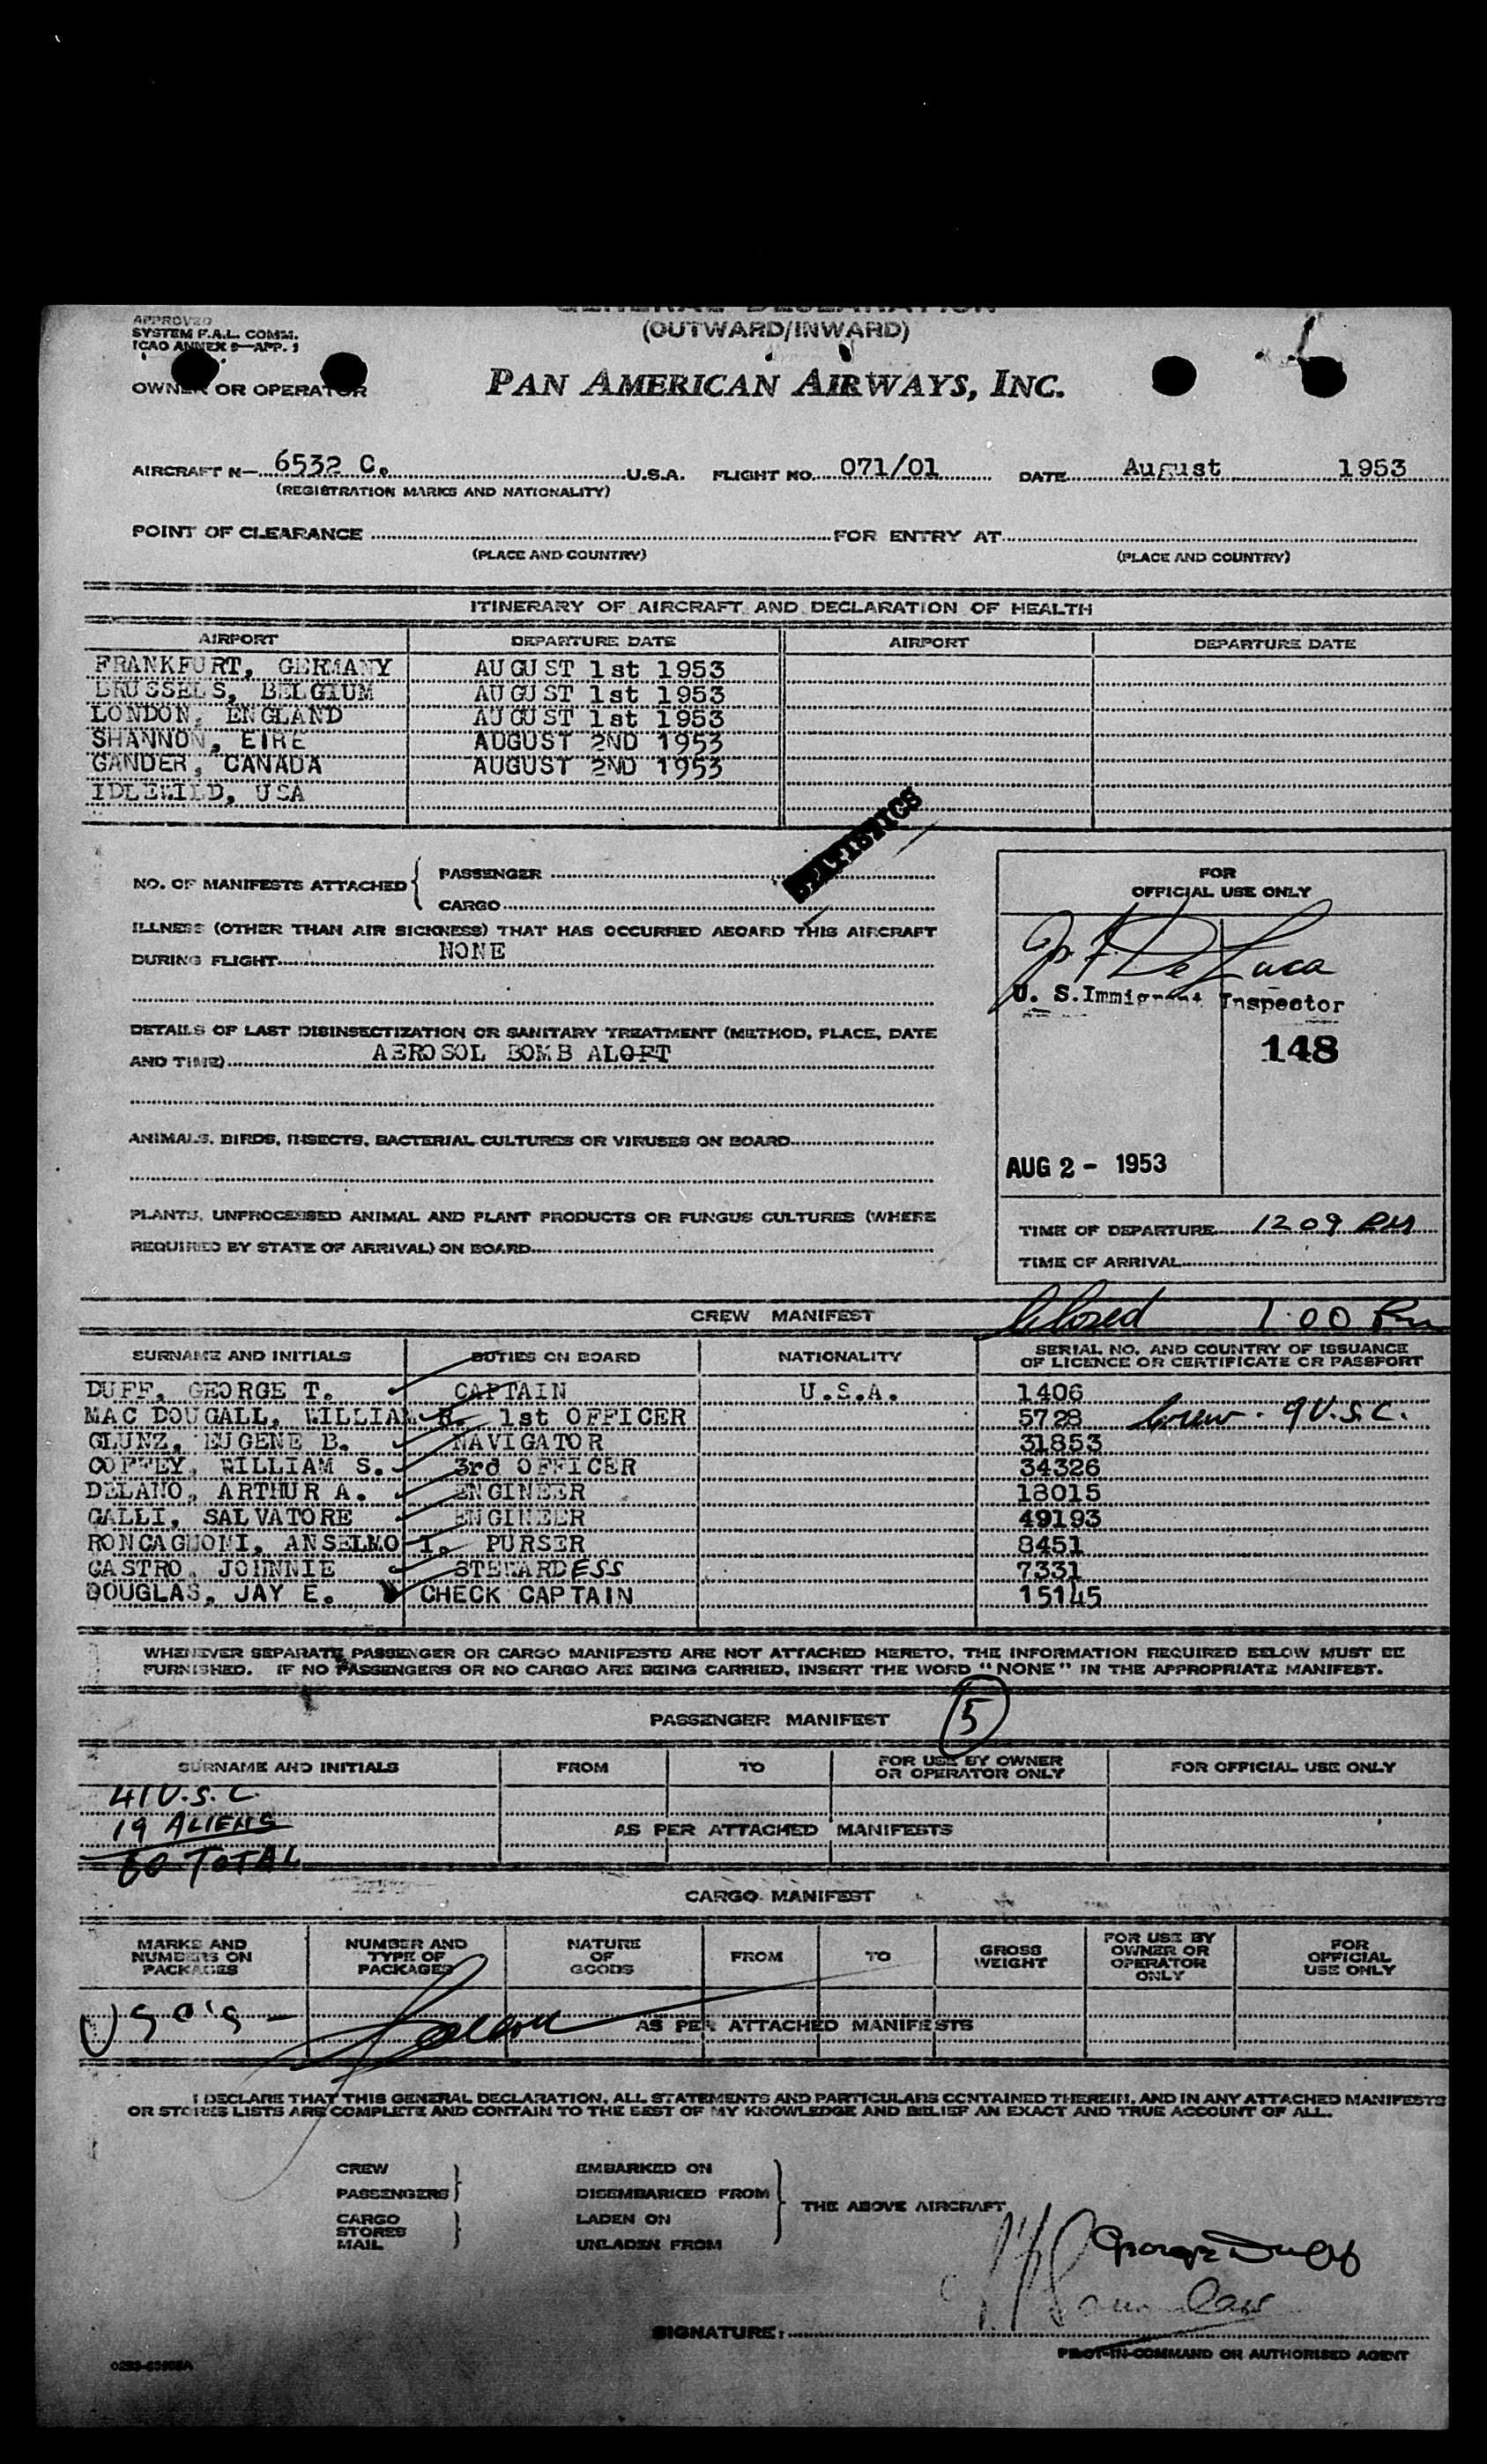 APPROVED
SYSTEM F.A.L. COMM.
ICAO ANNEX 9—APP. 1
GENERAL DECLARATION
(OUTWARD/INWARD)
OWNER OR OPERATOR PAN AMERICAN AIRWAYS, INC.
AIRCRAFT N— 6532 C. U.S.A. FLIGHT NO. 071/01 DATE August 1953
(REGISTRATION MARKS AND NATIONALITY)
POINT OF CLEARANCE FOR ENTRY AT
(PLACE AND COUNTRY) (PLACE AND COUNTRY)
ITINERARY OF AIRCRAFT AND DECLARATION OF HEALTH
AIRPORT DEPARTURE DATE AIRPORT DEPARTURE DATE
FRANKFURT, GERMANY AUGUST 1st 1953
BRUSSELS, BELGIUM AUGUST 1st 1953
LONDON, ENGLAND AUGUST 1st 1953
SHANNON, EIRE AUGUST 2ND 1953
GANDER, CANADA AUGUST 2ND 1953
IDLEWILD, USA
STATISTICS
NO. OF MANIFESTS ATTACHED PASSENGER
CARGO
ILLNESS (OTHER THAN AIR SICKNESS) THAT HAS OCCURRED ABOARD THIS AIRCRAFT
DURING FLIGHT NONE
DETAILS OF LAST DISINSECTIZATION OR SANITARY TREATMENT (METHOD, PLACE, DATE
AND TIME) AEROSOL BOMB ALOFT
ANIMALS, BIRDS, INSECTS, BACTERIAL CULTURES OR VIRUSES ON BOARD
PLANTS, UNPROCESSED ANIMAL AND PLANT PRODUCTS OR FUNGUS CULTURES (WHERE
REQUIRED BY STATE OF ARRIVAL) ON BOARD
FOR
OFFICIAL USE ONLY
De Luca
U. S. Immigrant Inspector
148
AUG 2 - 1953
TIME OF DEPARTURE 1209 PM
TIME OF ARRIVAL
Closed 1:00 Pm
CREW MANIFEST
SURNAME AND INITIALS DUTIES ON BOARD NATIONALITY SERIAL NO. AND COUNTRY OF ISSUANCE
OF LICENCE OR CERTIFICATE OR PASSPORT
DUFF, GEORGE T. CAPTAIN U.S.A. 1406
MAC DOUGALL, WILLIAM H. 1st OFFICER 5728 Crew - 9 U.S.C.
GLUNZ, EUGENE B. NAVIGATOR 31853
COFFEY, WILLIAM S. 3rd OFFICER 34326
DELANO, ARTHUR A. ENGINEER 18015
GALLI, SALVATORE ENGINEER 49193
RONCAGLIONI, ANSELMO I. PURSER 8451
CASTRO, JOHNNIE STEWARDESS 7331
DOUGLAS, JAY E. CHECK CAPTAIN 15145
WHENEVER SEPARATE PASSENGER OR CARGO MANIFESTS ARE NOT ATTACHED HERETO, THE INFORMATION REQUIRED BELOW MUST BE
FURNISHED. IF NO PASSENGERS OR NO CARGO ARE BEING CARRIED, INSERT THE WORD "NONE" IN THE APPROPRIATE MANIFEST.
PASSENGER MANIFEST 5
SURNAME AND INITIALS FROM TO FOR USE BY OWNER
OR OPERATOR ONLY FOR OFFICIAL USE ONLY
41 U.S.C.
19 ALIENS AS PER ATTACHED MANIFESTS
60 TOTAL
CARGO MANIFEST
MARKS AND
NUMBERS ON
PACKAGES
NUMBER AND
TYPE OF
PACKAGES
NATURE
OF
GOODS
FROM TO GROSS
WEIGHT
FOR USE BY
OWNER OR
OPERATOR
ONLY
FOR
OFFICIAL
USE ONLY
AS PER ATTACHED MANIFESTS
I DECLARE THAT THIS GENERAL DECLARATION, ALL STATEMENTS AND PARTICULARS CONTAINED THEREIN, AND IN ANY ATTACHED MANIFESTS
OR STORES LISTS ARE COMPLETE AND CONTAIN TO THE BEST OF MY KNOWLEDGE AND BELIEF AN EXACT AND TRUE ACCOUNT OF ALL.
CREW EMBARKED ON
PASSENGERS DISEMBARKED FROM
THE ABOVE AIRCRAFT
CARGO LADEN ON
STORES
MAIL UNLADEN FROM
George Duff
SIGNATURE:
PILOT-IN-COMMAND OR AUTHORISED AGENT